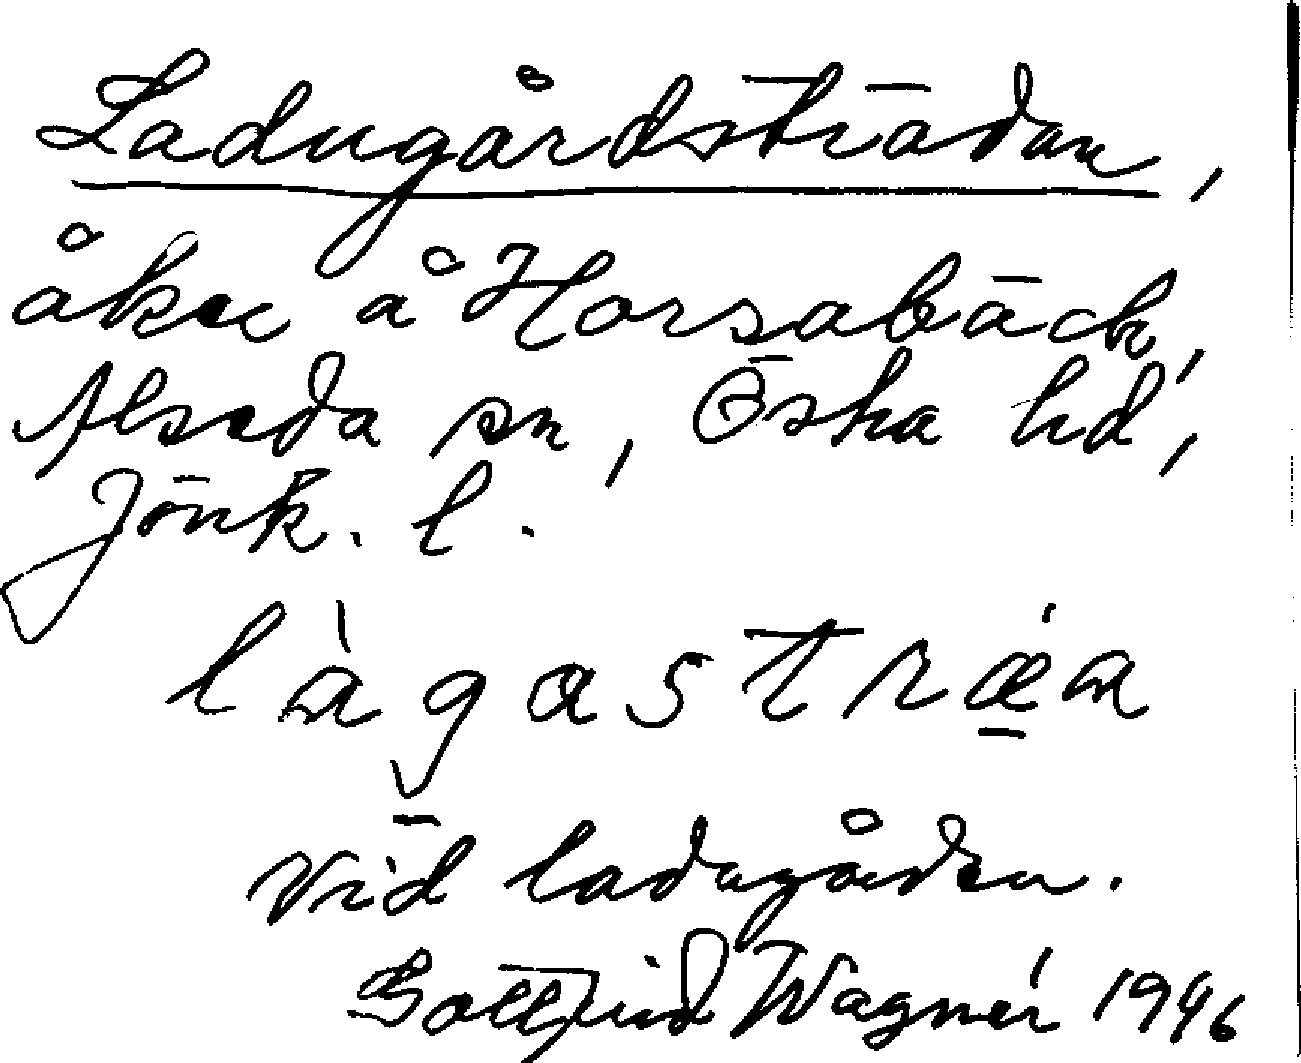 Ladugårdsträdan,
åker å Horsabäck,
Alseda sn, Östra hd,
Jönk. l.
làgastrǽa
Vid ladugården.
Gottfrid Wagnér 1946